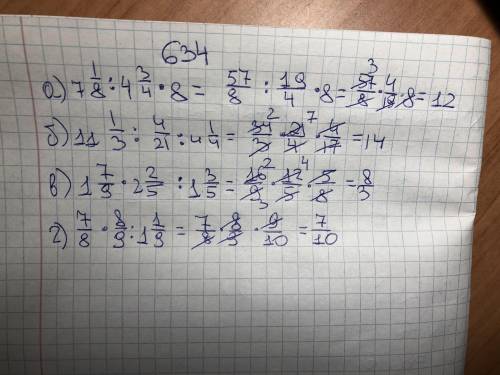 634
а) 7 1/8 : 4 3/4 · 8 = 57/8 : 19/4 · 8 = 57/8 · 4/19 · 8 = 12
б) 11 1/3 : 4/21 : 4 1/4 = 34/3 · 21/4 · 4/17 = 14
в) 1 7/9 · 2 2/5 : 1 3/5 = 16/9 · 12/5 · 5/8 = 8/3
г) 7/8 · 8/9 : 1 1/9 = 7/8 · 8/9 · 9/10 = 7/10